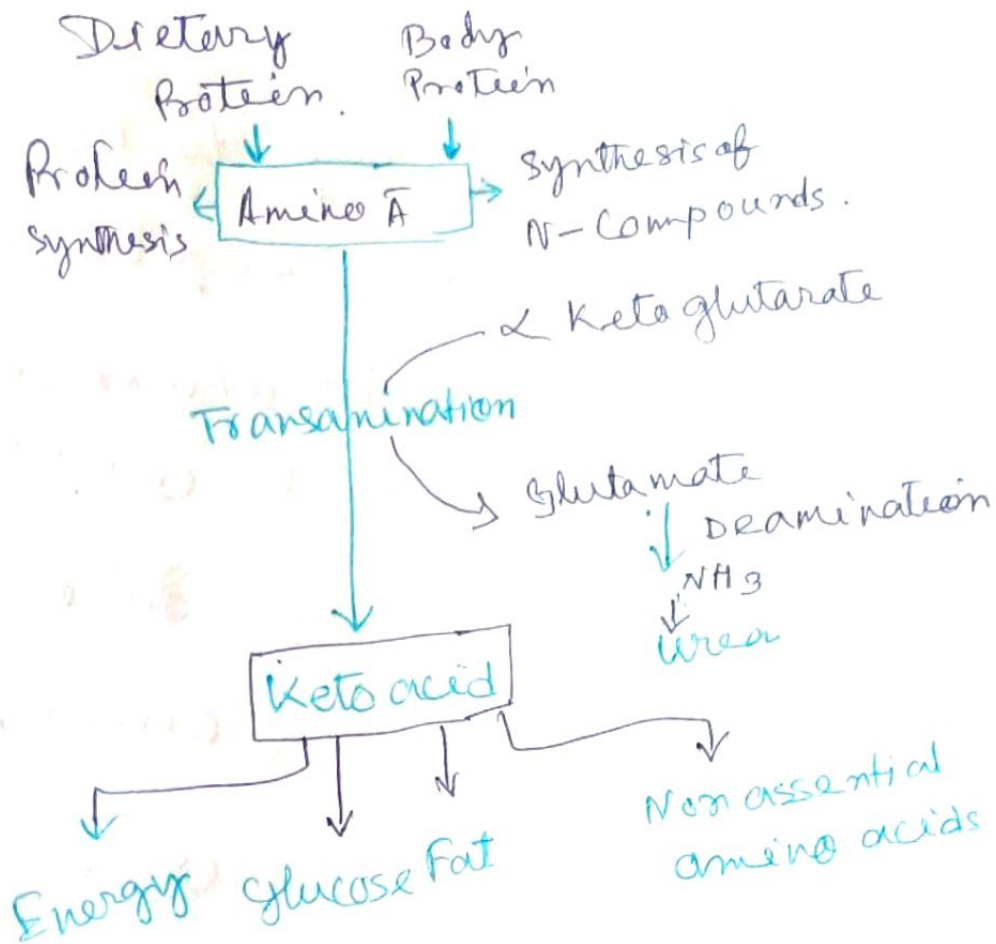 Dietary
Protein.
Body
Protein
Protein
synthesis
Amino Ā
Synthesis of
N-Compounds.
α Keto glutarate
Transamination
Glutamate
Deamination
NH3
Urea
Keto acid
Energy
Glucose
Fat
Non assential
amino acids